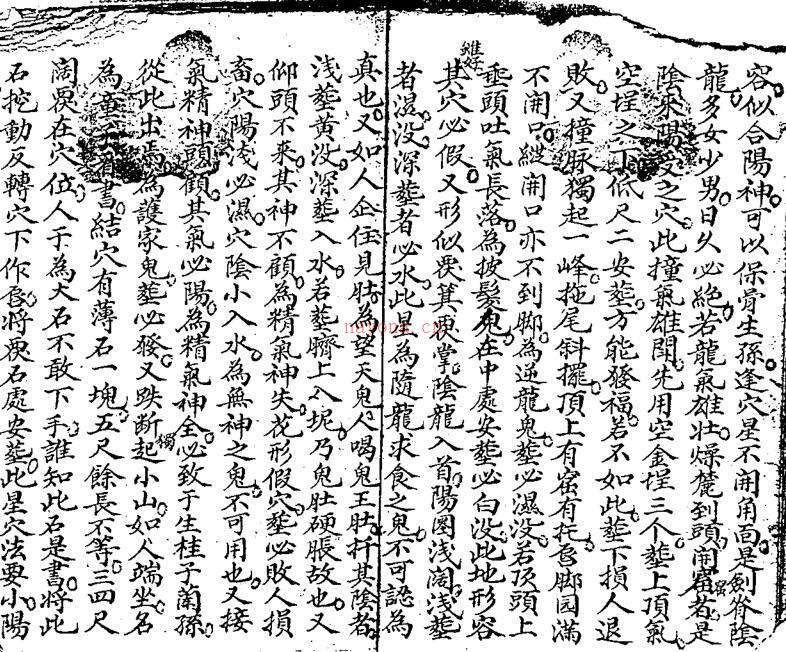 容似合陽神可以保骨生孫逢穴星不開角面是劍脊陰
龍多女少男日久必絕若龍氣雄壯燥麓到頭開窟者是
陰來陽受之穴此撞氣雄閗先用空金埕三个塟上頂氣
空埕之下低尺二安塟方能發福若不如此塟下損人退
敗又撞脉獨起一峰拖尾斜擺頂上有窟有托唇脚园滿
不開口縱開口亦不到脚為逆龍鬼塟必濕没若頂頭上
垂頭吐氣長落為披髮鬼在中處安塟必白没此地形容
雖好
其穴必假又形似覆箕覆掌陰龍入首陽圏浅闊浅塟
者濕没深塟者必水此星為隨龍求食之鬼不可認為
真也又如人企住見肚為望天鬼人喝鬼王肚扞其陰者
浅塟黄没深塟入水若塟臍上入坭乃鬼肚硬脹故也又
仰頭不來其神不顧為精氣神失花形假穴塟必敗人損
畜穴陽浅必濕穴陰小入水為無神之鬼不可用也又接
氣精神頭顧其氣必陽為精氣神全必致于生桂子蘭孫
從此出焉為護家鬼塟必發又跌断起獨小山如人端坐名
為童子看書結穴有薄石一塊五尺餘長不等三四尺
闊覆在穴位人于為大石不敢下手誰知此石是書將此
石挖動反轉穴下作唇將覆石處安塟此星穴法要小陽
nayona.cn